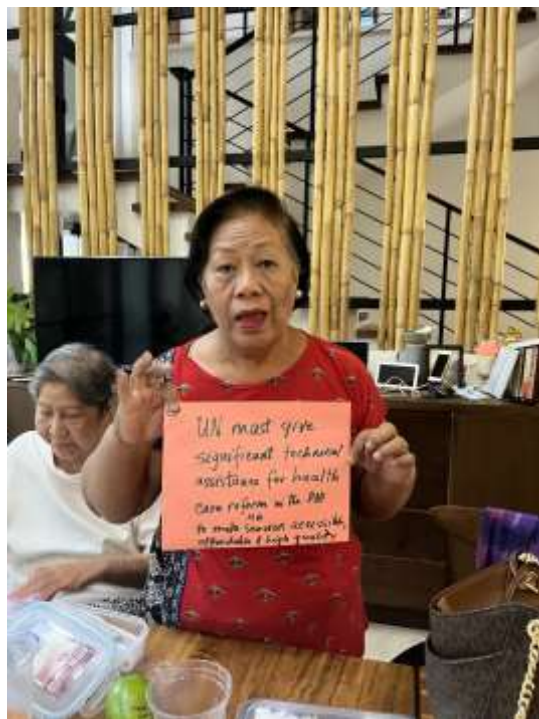 UN must give
significant technical
assistance for health
care reform in the
to make services accessible,
affordable & high quality